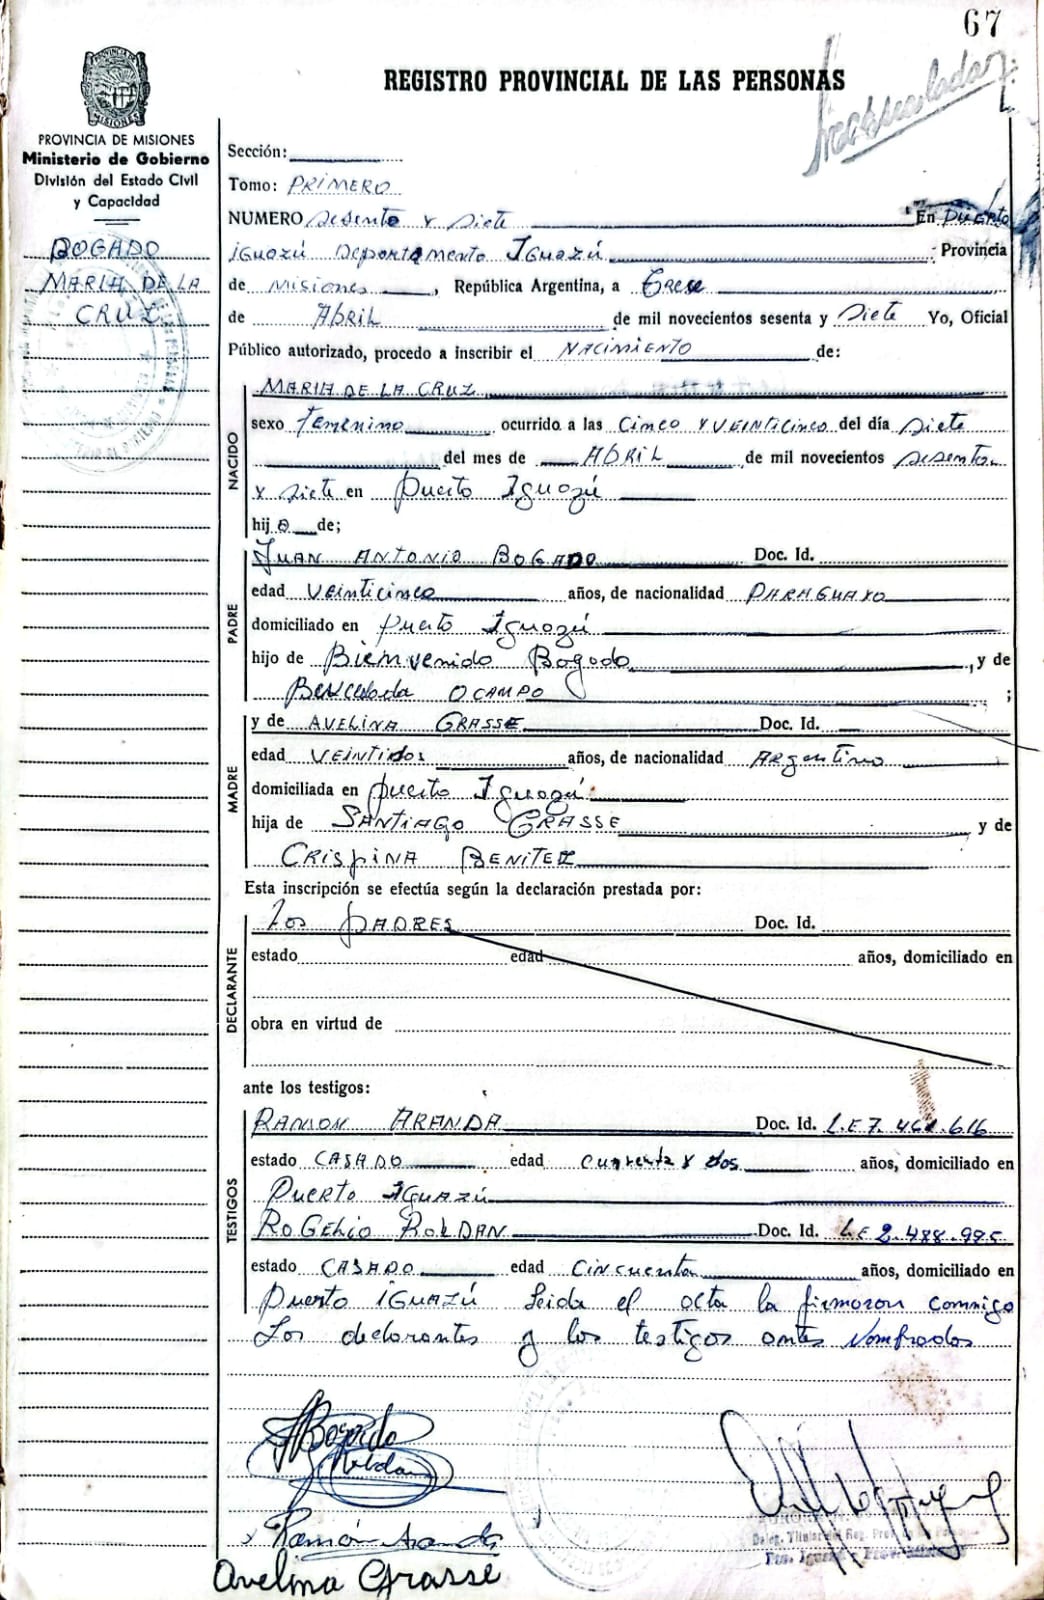 67
REGISTRO PROVINCIAL DE LAS PERSONAS
PROVINCIA DE MISIONES
Ministerio de Gobierno
División del Estado Civil
y Capacidad
BOGADO
MARIA DE LA
CRUZ
Sección:
Tomo: PRIMERO
NUMERO sesenta y siete En Puerto
iguazú Departamento Iguazú Provincia
de Misiones, República Argentina, a Trece
de Abril de mil novecientos sesenta y siete Yo, Oficial
Público autorizado, procedo a inscribir el NACIMIENTO de:
NACIDO
MARIA DE LA CRUZ
sexo femenino ocurrido a las Cinco y VEINTICINCO del día siete
del mes de ABRIL de mil novecientos sesenta
y siete en puerto Iguazú
hija de;
PADRE
JUAN ANTONIO BOGADO Doc. Id.
edad VEINTICINCO años, de nacionalidad PARAGUAYO
domiciliado en puerto Iguazú
hijo de Bienvenido Bogado, y de
OCAMPO;
MADRE
y de AVELINA GRASSE Doc. Id.
edad VEINTIDOS años, de nacionalidad Argentina
domiciliada en puerto Iguazú
hija de SANTIAGO GRASSE y de
CRISPINA BENITEZ
Esta inscripción se efectúa según la declaración prestada por:
DECLARANTE
Los PADRES Doc. Id.
estado edad años, domiciliado en
obra en virtud de
ante los testigos:
TESTIGOS
RAMON ARANDA Doc. Id. L.E 7. 616
estado CASADO edad cuarenta y dos años, domiciliado en
Puerto IGUAZÚ
ROGELIO ROLDAN Doc. Id. L.E 2.488.995
estado CASADO edad CINCUENTA años, domiciliado en
Puerto IGUAZÚ leida el acta la firmaron conmigo
Los declarantes y los testigos antes Nombrados
Bogado
Roldan
Ramón Aranda
Avelina Grasse